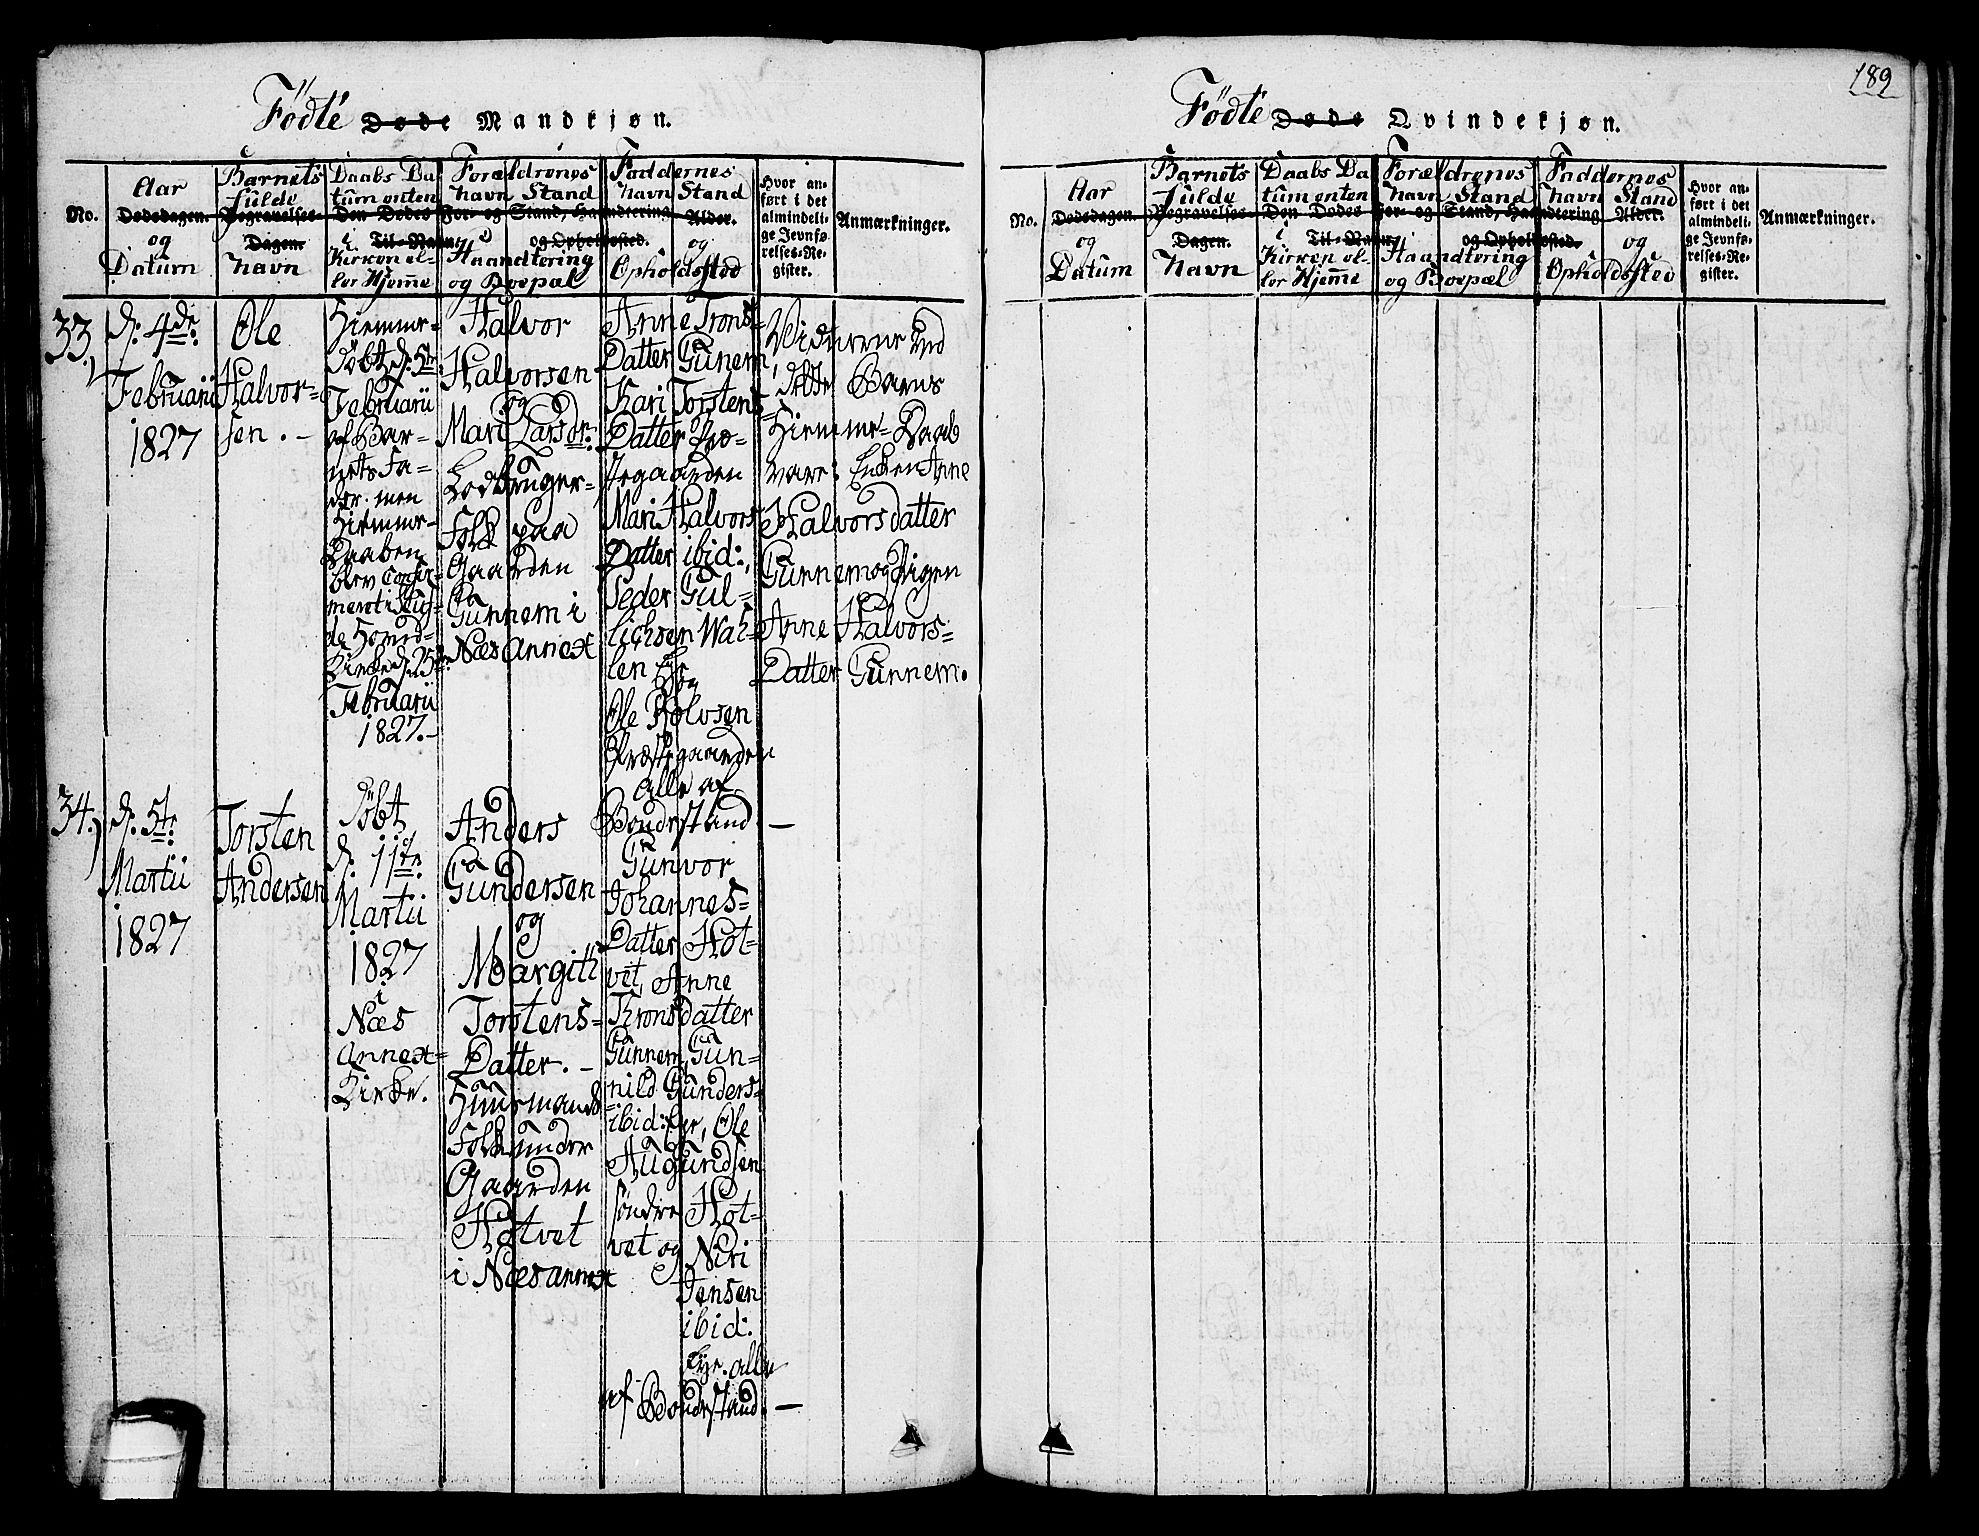 189
Födte Døde Mandkjøn.
No.
Aar
Dødsdagen.
og
Datum
Barnets
fulde
Begravelses-
Dagen.
Navn
Daabs Da
tum enten
Den Dødes For- og
i
Til-Navn,
Kirken el-
ler Hjem̄e
Forældrenes
Navn Stand
Stand, Haandtering
og Opholdssted.
Haandtering
og Boepæl
Faddernes
Navn Stand
Alder.
og
Opholdssted
Hvor an-
ført i det
almindeli-
ge Jevnfø-
relses-Re-
gister.
Anmærkninger.
33.
d: 4de
Februarii
1827
Ole
Halvor-
sen. -
Hiemme-
döbt d: 5te
Februarii
af Bar-
nets Fa-
der. men
Hiemme-
Daaben
blev Confir-
meret i
Kirke d. 25de
Februarii
1827.-
Halvor
Halvorsen
og
Mari Larsdr:
Folk paa
Gaarden
Gunnem i
Næs Annext
Anne Trons-
Datter Gunem,
Kari Torstens-
Datter
Mari Halvors-
Datter ibid:,
Peder Gul-
lichsen Wah-
len
og
Ole Rolvsen
Præstegaarden
alle af
Bondestand -
Vidnerne ved
dette Barns
Hiemme-Daab
vare: Enken Anne
Halvorsdatter
Gunnem og Pigen
Anne Halvors-
Datter Gunnem.
34.
d: 5te
Martii
1827
Torsten
Andersen
Döbt
d: 11te
Martii
1827
i
Næs
Annex-
Kirke.
Anders
Gundersen
og
Margith
Torstens-
Datter. -
Huusmands
Folk under
Gaarden
Hotvet
i Næs annext
Gunvor
Johannes-
Datter Hot-
vet, Anne
Thronsdatter
Gunnem, Gun-
nild Gunders-
ibid: , Ole
Augundsen
söndre Hot-
vet og Niri
Jensen
ibid:
alle
af Bondestand. -
Födte Døde Qvindekjøn.
No.
Aar
Dødsdagen.
og
Datum
Barnets
fulde
Begravelses-
Dagen.
Navn
Daabs Da
tum enten
Den Dødes For- og
i
Til-Navn,
Kirken el-
ler Hjem̄e
Forældrenes
Navn Stand
Stand, Haandtering
og Opholdssted.
Haandtering
og Boepæl
Faddernes
Navn Stand
Alder.
og
Opholdssted
Hvor an-
ført i det
almindeli-
ge Jevnfø-
relses-Re-
gister.
Anmærkninger.